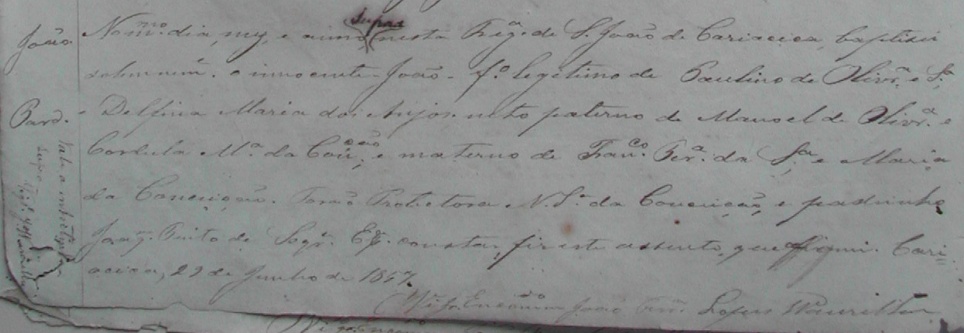 João
Pard.
No mmo. dia, mez, e anno supra nesta Frega. de S. João de Cariacica, baptisei
solemnem. o innocente João - fo. legitimo de Paulino de Olivra. e Sa.
Delfina Maria dos Anjos neto paterno de Manoel de Olivra. e
Cordula Ma. da Concção, e materno de Franco. Pera. da Sa. e Maria
da Conceição. Foráo Protectora N. Sra. da Conceição, e padrinho
Joaqm. Pinto de Seqra. E pa. constar, fiz este assento, que assignei. Cari-
acica, 29 de Junho de 1857.
Vigro. Encomdo. João Lopes